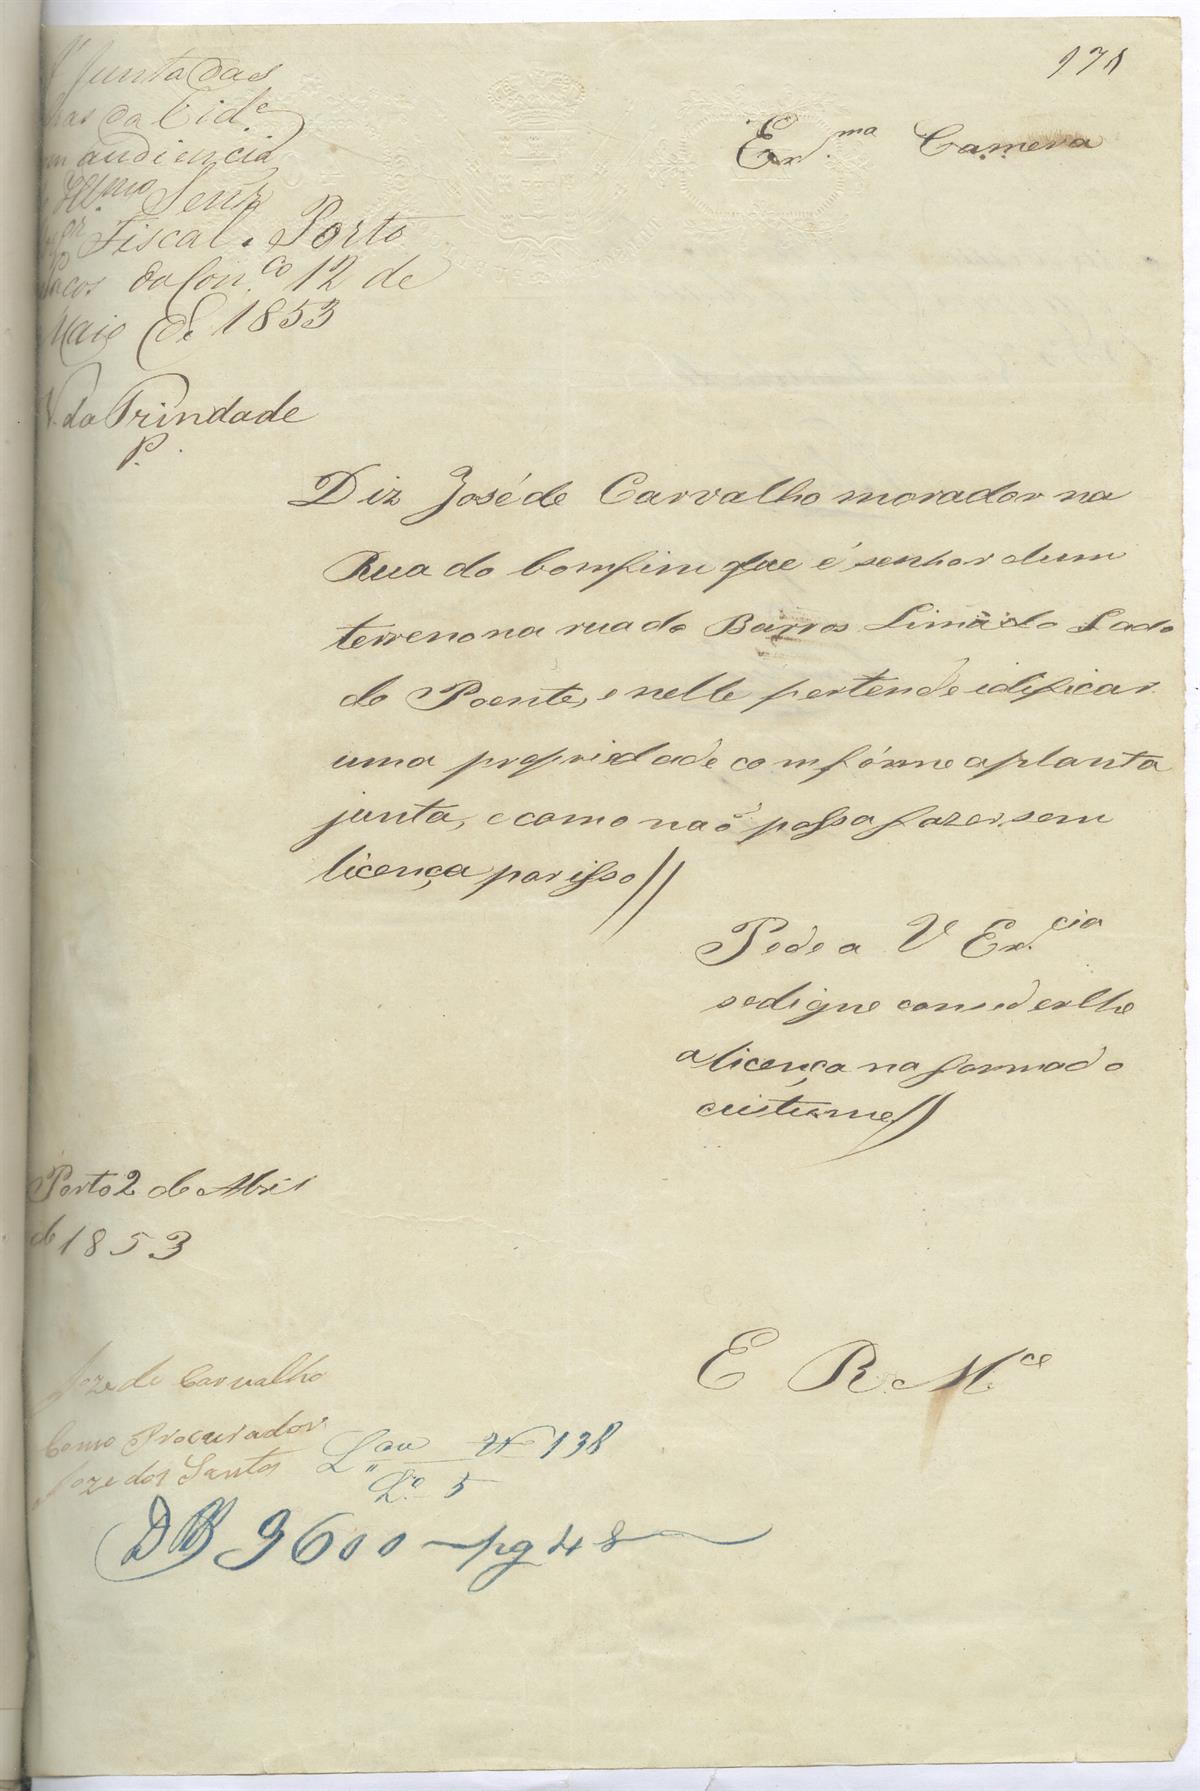 171
Ex.ma Camera
A' Junta das
ras da Cid.e
m audiencia
Ill.mo Senr
Fiscal. Porto
Paços do Con.co 12 de
Maio de 1853
V. da Trindade
P.
Diz José de Carvalho morador na
Rua do bomfim que é senhor dum
terreno na rua do Barros Lima do Lado
do Poente, e nelle pertende idificar
uma propriedade comfórme a planta
junta, e como naõ possa fazer sem
licença por isso //
Pede a V Ex.cia
se digne comsederlhe
a licença na forma do
custume //
Porto 2 de Abril
de 1853
E R. M.ce
Joze de Carvalho
Como Procurador
Joze dos Santos
L.ou Nº 138
L.o 5
9600 — pg 48